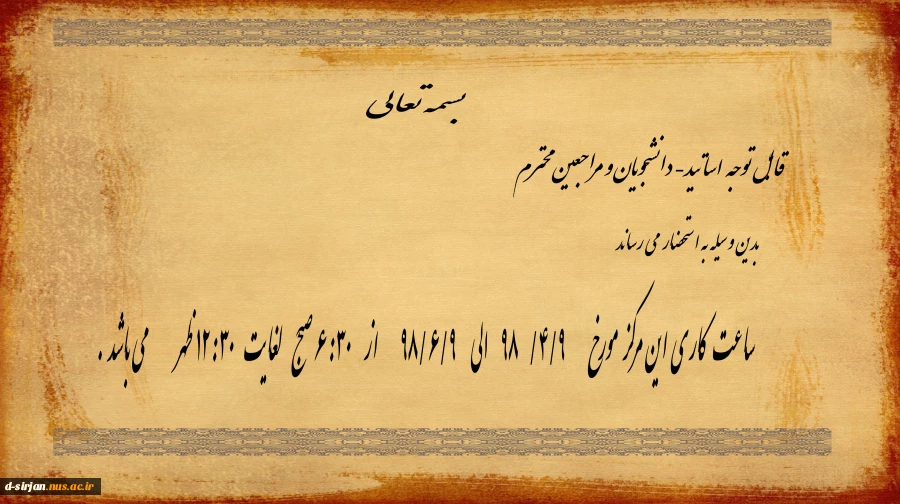 بسمه تعالی
قابل توجه اساتید-دانشجویان و مراجعین محترم
بدین وسیله به استحضار می رساند
ساعت کاری این مرکز مورخ ۹/ ۴/ ۹۸ الی ۹۸/۶/۹ از ۶:۳۰ صبح لغایت ۱۲:۳۰ ظهر می باشد .
d-sirjan.nus.ac.ir